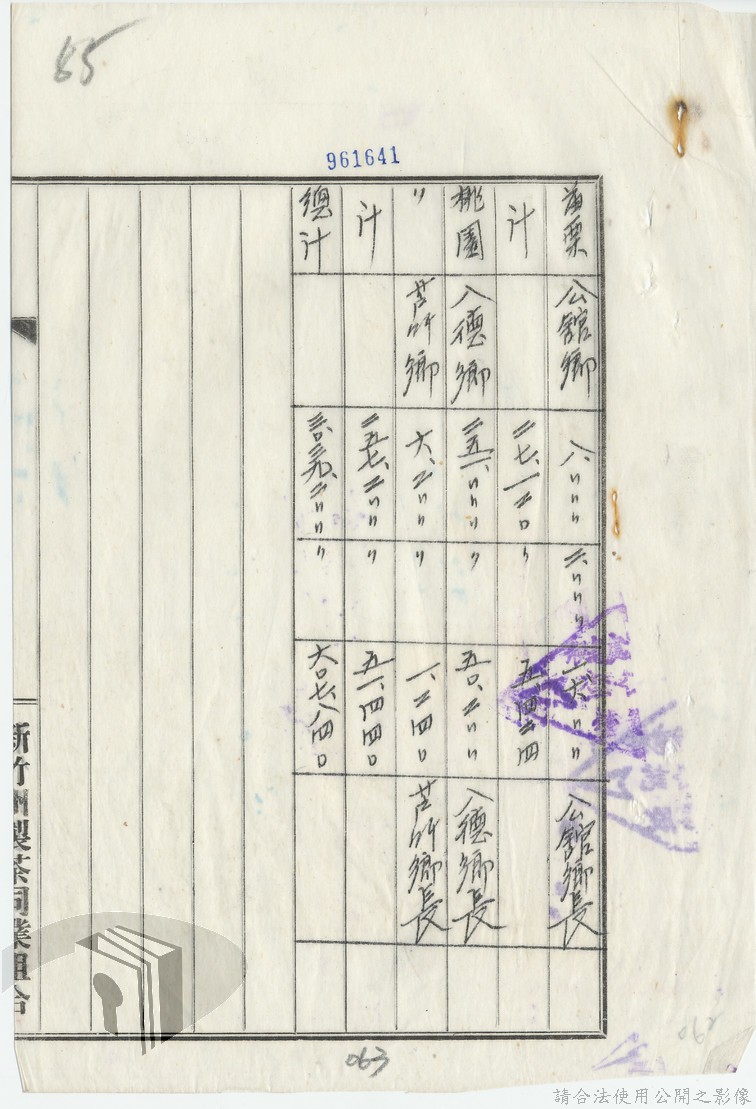 85
961641
苗栗 公館鄉 八、〃〃〃 二、〃〃〃 一六、〃〃 公館鄉長
計 二七、一二〇 〃 五、四二四
桃園 八德鄉 二五一、〃〃〃 〃 五〇、二〃〃 八德鄉長
〃 芦竹鄉 六、二〃〃 〃 一、二四〇 芦竹鄉長
計 二五七、二〃〃 〃 五一、四四〇
總計 〃 六〇七、八四〇
新竹州製茶同業組合
063
062
請合法使用公開之影像